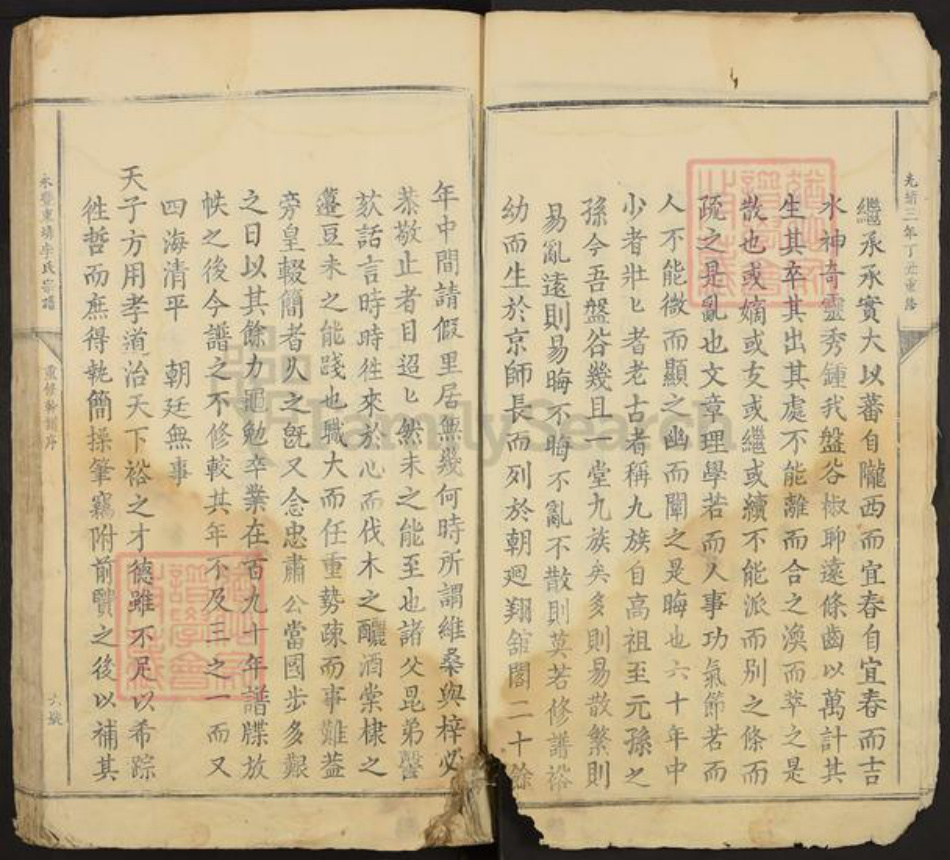 光緒三年丁丑重修
繼承承實大以蕃自隴西而宜春自宜春而吉
水神奇靈秀鍾我盤谷椒聊遠條齒以萬計其
生其卒其出其處不能離而合之渙而萃之是
散也或嫡或支或繼或續不能派而別之條而
疏之是亂也文章理學若而人事功氣節若而
人不能微而顯之幽而闡之是晦也六十年中
少者壯匕者老古者稱九族自高祖至元孫之
孫今吾盤谷幾且一堂九族矣多則易散繁則
易亂遠則易晦不晦不亂不散則莫若修譜裕
幼而生於京師長而列於朝廻翔舘閣二十餘
年中間請假里居無幾何時所謂維桑與梓必
恭敬止者目迢匕然未之能至也諸父昆弟謦
欬話言時時徃來於心而伐木之釃酒棠棣之
籩豆未之能踐也職大而任重勢疎而事難葢
旁皇輟簡者久之旣又念忠肅 公當國步多艱
之日以其餘力黽勉卒業在百九十年譜牒放
帙之後今譜之不修較其年不及三之一而又
四海清平 朝廷無事
天子方用孝道治天下裕之才德雖不足以希踪
徃哲而庶得執簡操筆竊附前賢之後以補其
永豐東墳李氏宗譜 重修新譜序 六號
FamilySearch